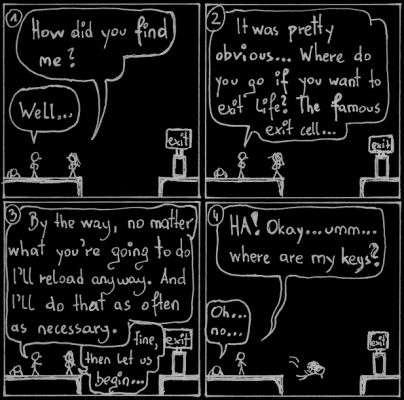 1
How did you find
me?
Well...
exit
2
It was pretty
obvious... Where do
you go if you want to
exit Life? The famous
exit cell...
exit
3
By the way, no matter
what you're going to do
I'll reload anyway. And
I'll do that as often
as necessary.
Fine,
then let us
begin...
exit
4
HA! Okay...umm...
where are my keys?
Oh...
no...
exit